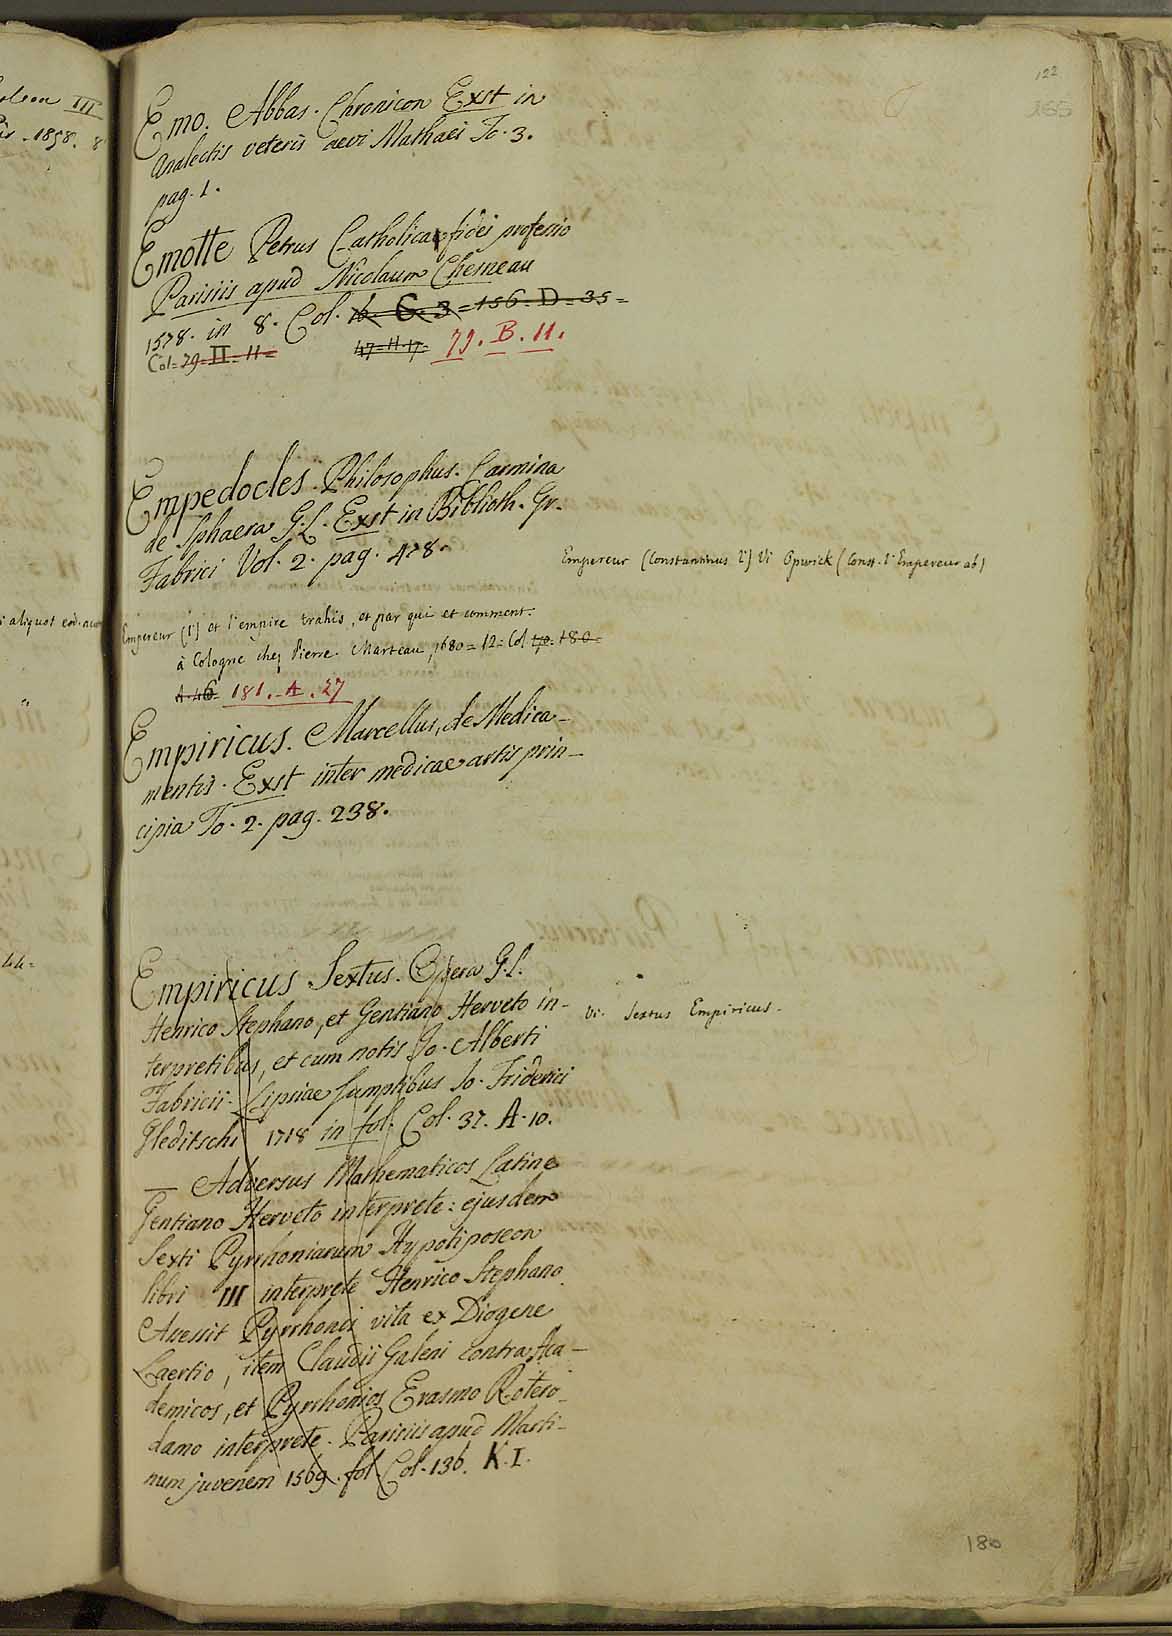 122
Emo. Abbas. Chronicon Exst in
Analectis veteris aevi Mathaei To. 3.
pag. 1.
Emotte Petrus Catholicae fidei professio
Parisiis apud Nicolaum Chesneau
1578. in 8. Col. 16. G. 3 = 156. D = 35 =
Col = 79 = II = 11 = 47 = 11. 17 = 79. B. 11.
Empedocles. Philosophus. Carmina
de Sphaera G. L. Exst in Biblioth. Gr.
Fabrici Vol. 2. pag. 478.
Empereur (Constantinus l') Vi Opwick (Const. l'Empereur ab)
Empereur (l') et l'empire trahis, et par qui et comment.
à Cologne chez Pierre Marteau, 1680 = 12 = Col. 180 =
A. 46 = 181. A. 27
Empiricus. Marcellus, de Medica-
mentis. Exst inter medicae artis prin-
cipia To. 2. pag. 238.
Empiricus Sextus. Opera G. L.
Henrico Stephano, et Gentiano Herveto in-
terpretibus, et cum notis Jo. Alberti
Fabricii. Lipsiae sumptibus Jo. Friderici
Gleditschi 1718 in fol. Col. 37. A. 10.
Vi. Sextus Empiricus.
— Adversus Mathematicos Latine
Gentiano Herveto interprete: ejusdem
Sexti Pyrrhoniarum Hypotiposeon
libri III interprete Henrico Stephano.
Accessit Pyrrhonis vita ex Diogene
Laertio, item Claudii Galeni contra Aca-
demicos, et Pyrrhonios Erasmo Rotero-
damo interprete. Parisiis apud Marti-
num juvenem 1569. fol. Col. 136. K. I.
180
III
1858. 8
i aliquot eod.